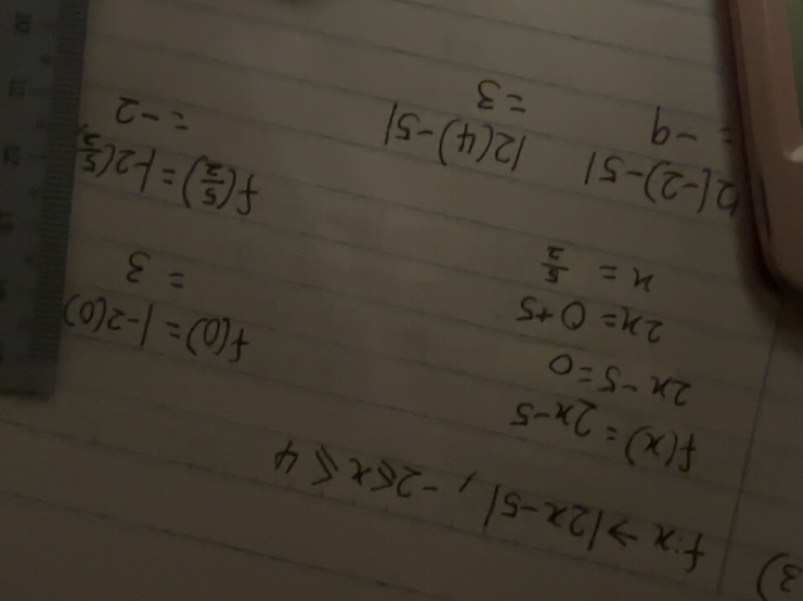 3) f:x → |2x-5| , -2≤x ≤ 4
f(x) = 2x-5
2x-5=0
2x = 0+5
x = 5/2
|2(-2)-5|
= -9
|2(4)-5|
= 3
f(0) = |-2(0)
= 3
f(5/2) = |-2(5/2
= -2